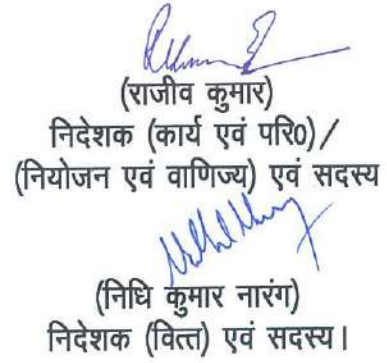 (राजीव कुमार)
निदेशक (कार्य एवं परि0)/
(नियोजन एवं वाणिज्य) एवं सदस्य
(निधि कुमार नारंग)
निदेशक (वित्त) एवं सदस्य।